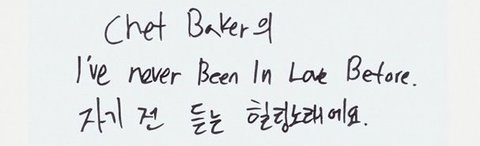 Chet Baker의
I've never Been In Love Before.
자기 전 듣는 힐링노래에요.